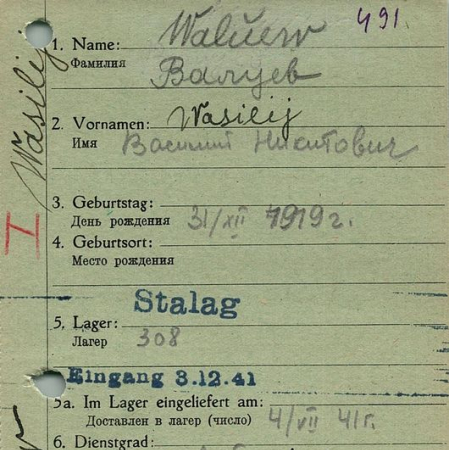 491.
Wasilij
1. Name: Waluew
Фамилия Валуев
2. Vornamen: Wasilij
Имя Василий Никитович
3. Geburtstag:
День рождения 31/XII 1919 г.
I
4. Geburtsort:
Место рождения
Stalag
5. Lager:
Лагер 308
Eingang 3.12.41
5a. Im Lager eingeliefert am:
Доставлен в лагер (число) 4/VII 41 г.
6. Dienstgrad: